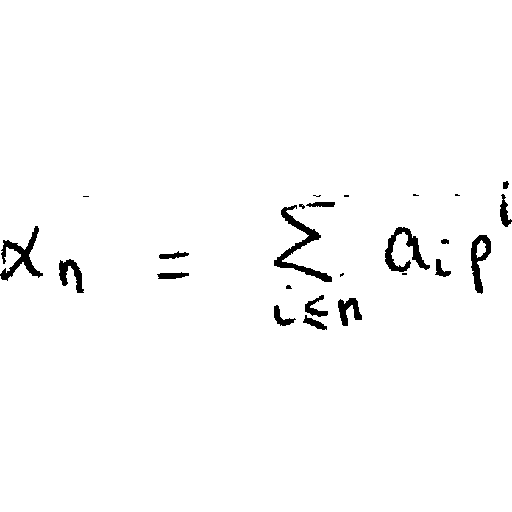 αₙ = ∑_{i≤n} aᵢ pⁱ